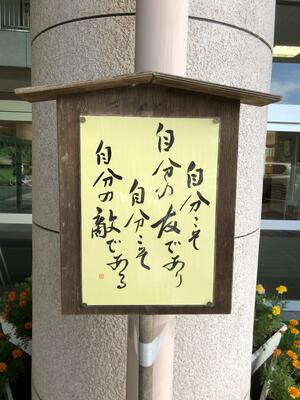 自分こそ
自分の友であり
自分こそ
自分の敵である